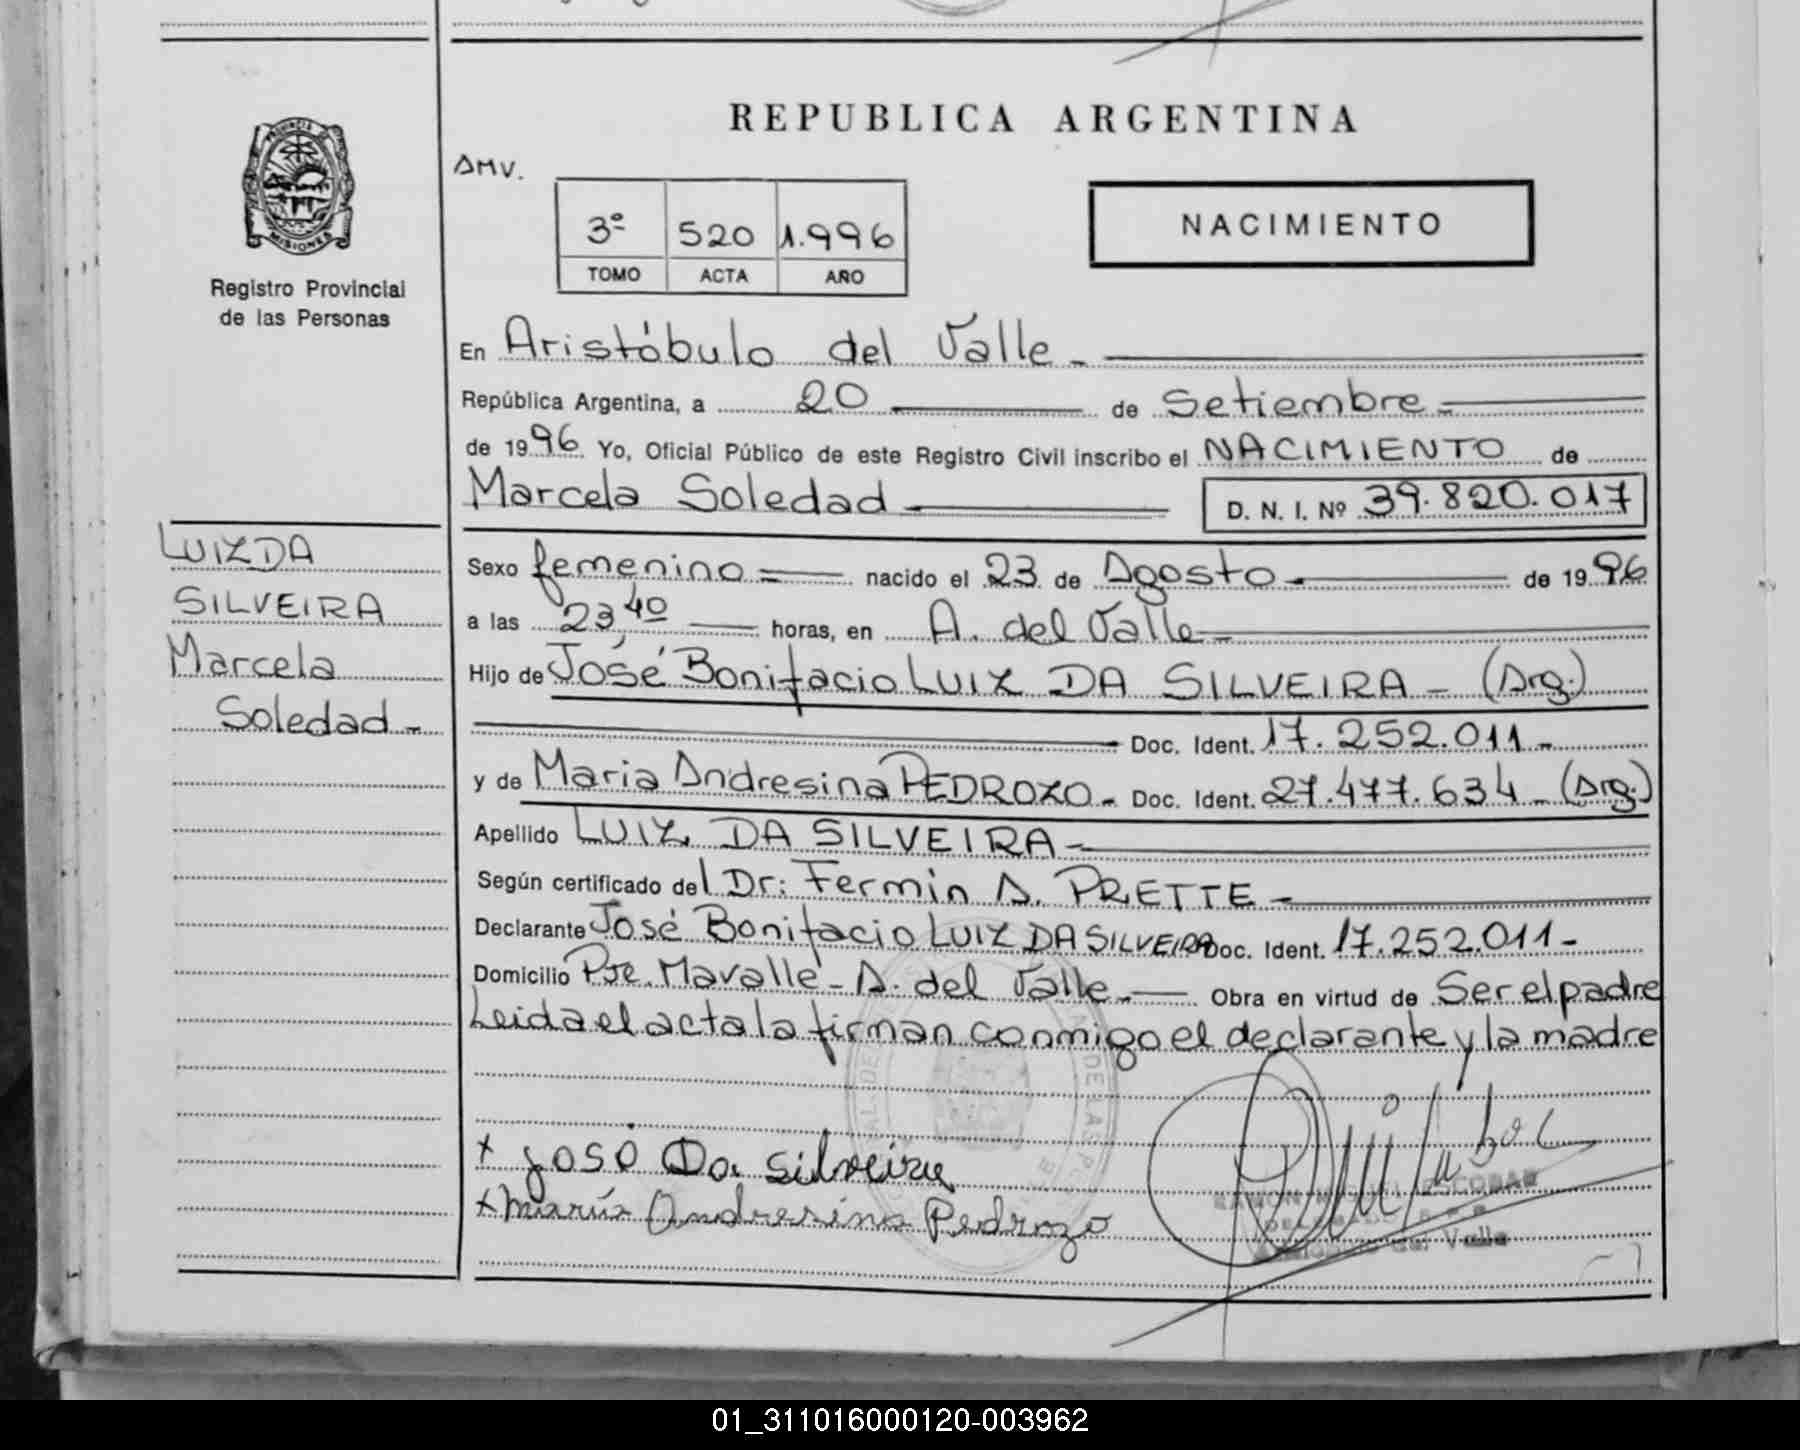 REPUBLICA ARGENTINA
AMV.
PROVINCIA DE
MISIONES
Registro Provincial
de las Personas
3º 520 1.996
TOMO ACTA AÑO
NACIMIENTO
En Aristóbulo del Valle -
República Argentina, a 20 de Setiembre -
de 1996 Yo, Oficial Público de este Registro Civil inscribo el NACIMIENTO de
Marcela Soledad D. N. I. Nº 39.820.017
LUIZ DA
SILVEIRA
Marcela
Soledad -
Sexo femenino nacido el 23 de Agosto - de 1996
a las 23,40 horas, en A. del Valle -
Hijo de José Bonifacio LUIZ DA SILVEIRA - (Arg.)
Doc. Ident. 17.252.011 -
y de Maria Andresina PEDROZO - Doc. Ident. 27.477.634 - (Arg.)
Apellido LUIZ DA SILVEIRA -
Según certificado del Dr: Fermin A. PRETTE -
Declarante José Bonifacio LUIZ DA SILVEIRA Doc. Ident. 17.252.011 -
Domicilio Pje. Mavalle - A. del Valle - Obra en virtud de Ser el padre
Leida el acta la firman conmigo el declarante y la madre
x José Da silveira
x María Andresina Pedrozo
RAMON MIGUEL ESCOBAR
Aristóbulo del Valle
01_311016000120-003962